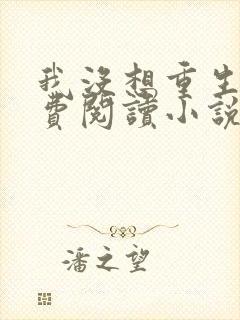 我沒想重生
費閱讀小說
潘之望